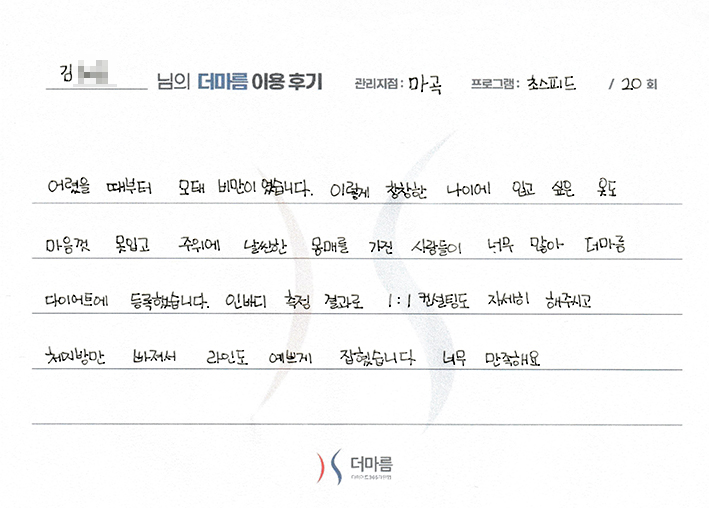 김 님의 더마름 이용 후기 관리지점 : 마곡 프로그램 : 초스피드 / 20 회
어렸을 때부터 모태 비만이였습니다. 이렇게 창창한 나이에 입고 싶은 옷도
마음껏 못입고 주위에 날씬한 몸매를 가진 사람들이 너무 많아 더마름
다이어트에 등록했습니다. 인바디 측정 결과로 1:1 컨설팅도 자세히 해주시고
체지방만 빠져서 라인도 예쁘게 잡혔습니다 너무 만족해요
더마름